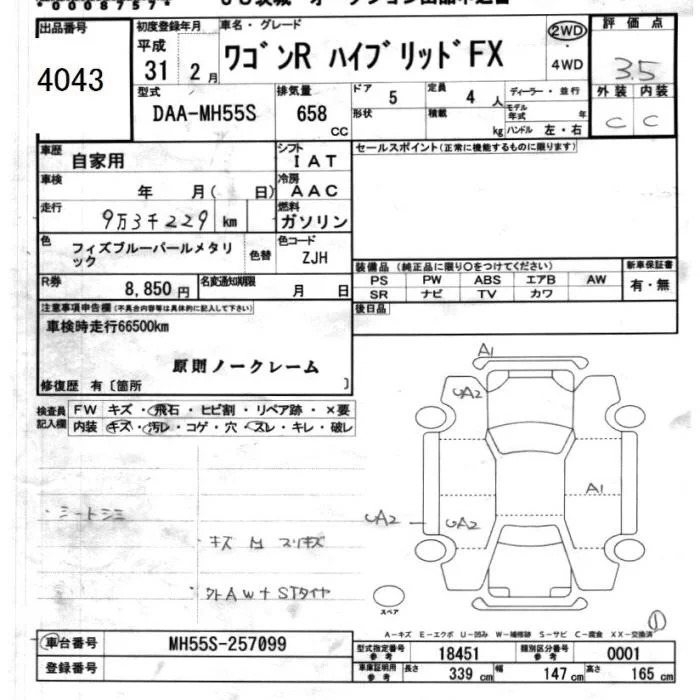 *00087574*
出品番号 初度登録年月 車名・グレード 2WD 評価点
4043 平成 31 2月 ワゴンR ハイブリッドFX 4WD 3.5
型式 排気量 ドア 定員 ディーラー・並行 外装 内装
DAA-MH55S 658 CC 5 4 人 モデル年式 年 C C
形状 積載 kg ハンドル 左・右
車歴 自家用 シフト IAT セールスポイント(正常に機能するものに限ります)
車検 年 月( 日) 冷房 AAC
走行 9万3千229 km 燃料 ガソリン
色 フィズブルーパールメタリック 色替 色コード ZJH
装備品(純正品に限り○をつけてください) 新車保証書
R券 8,850円 名変通知期限 月 日 PS PW ABS エアB AW 有・無
SR ナビ TV カワ
注意事項申告欄(不具合内容等は具体的に記入して下さい) 後日品
車検時走行66500km
原則ノークレーム
修復歴 有〔箇所 〕
検査員記入欄 FW キズ・飛石・ヒビ割・リペア跡・×要
内装 キズ・汚レ・コゲ・穴・スレ・キレ・破レ
A1
UA2
A1
UA2 UA2
・シートシミ
・キズ M スリキズ
スペア
A-キズ E-エクボ U-凹み W-補修跡 S-サビ C-腐食 XX-交換済
①
車台番号 MH55S-257099 型式指定番号 参考 18451 類別区分番号 参考 0001
登録番号 車庫証明用 参考 長さ 339 cm 幅 147 cm 高さ 165 cm